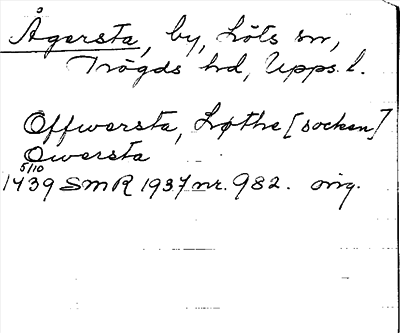 Ågersta, by, Löts sn,
Trögds hd, Upps. l.
Offwersta, Løthe [socken]
Owersta
5/10
1439 SMR 1937 nr. 982. orig.